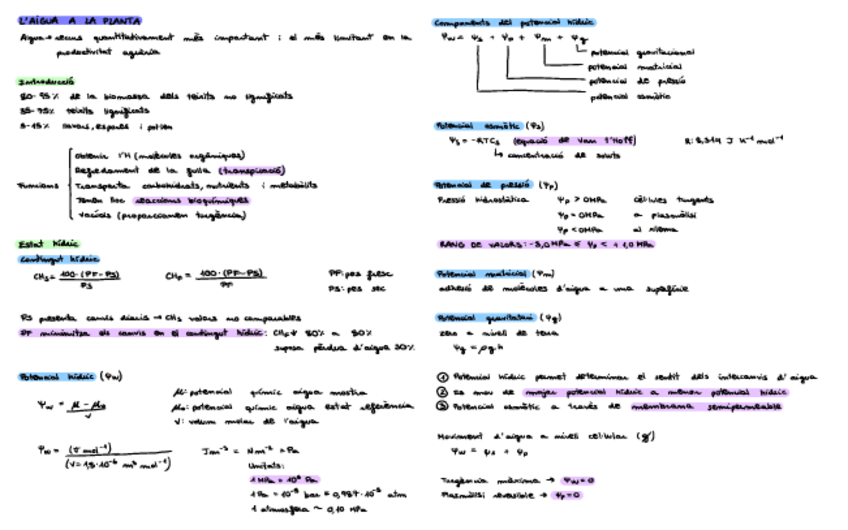 L'AIGUA A LA PLANTA
Aigua → recurs quantitativament més important i el més limitant en la
productivitat agrària
Introducció
80-95% de la biomassa dels teixits no lignificats
35-75% teixits lignificats
5-15% llavors, espores i pol·len
Funcions
Obtenir l'H (molècules orgàniques)
Refredament de la fulla (transpiració)
Transporta carbohidrats, nutrients i metabòlits
Tenen lloc reaccions bioquímiques
Vacúols (proporcionen turgència)
Estat hídric
Contingut hídric
CHs = 100·(PF-PS) / PS
CHf = 100·(PF-PS) / PF
PF: pes fresc
PS: pes sec
PS presenta canvis diaris → CHs valors no comparables
PF minimitza els canvis en el contingut hídric: CHf ↓ 80% a 50%
suposa pèrdua d'aigua 30%
Potencial hídric (Ψw)
Ψw = μ - μo / V
μ: potencial químic aigua mostra
μo: potencial químic aigua estat referència
V: volum molar de l'aigua
Ψw = (J mol⁻¹) / (V=18·10⁻⁶ m³ mol⁻¹)
Jm⁻³ = Nm⁻² = Pa
Unitats:
1 MPa = 10⁶ Pa
1 Pa = 10⁻⁵ bar = 0,987·10⁻⁵ atm
1 atmosfera ~ 0,10 MPa
Components del potencial hídric
Ψw = Ψs + Ψp + Ψm + Ψg
potencial gravitacional
potencial matricial
potencial de pressió
potencial osmòtic
Potencial osmòtic (Ψs)
Ψs = -RTCs (equació de Van t'Hoff)
R: 8,314 J K⁻¹ mol⁻¹
↳ concentració de soluts
Potencial de pressió (Ψp)
Pressió hidrostàtica
Ψp > 0MPa cèl·lules turgents
Ψp = 0MPa a plasmòlisi
Ψp < 0MPa al xilema
RANG DE VALORS: -3,0MPa ≤ Ψp < +1,0MPa
Potencial matricial (Ψm)
adhesió de molècules d'aigua a una superfície
Potencial gravitatori (Ψg)
zero a nivell de terra
Ψg = ρgh
① Potencial hídric permet determinar el sentit dels intercanvis d'aigua
② Es mou de major potencial hídric a menor potencial hídric
③ Potencial osmòtic a través de membrana semipermeable
Moviment d'aigua a nivell cel·lular
Ψw = Ψs + Ψp
Turgència màxima → Ψw=0
Plasmòlisi reversible → Ψp=0